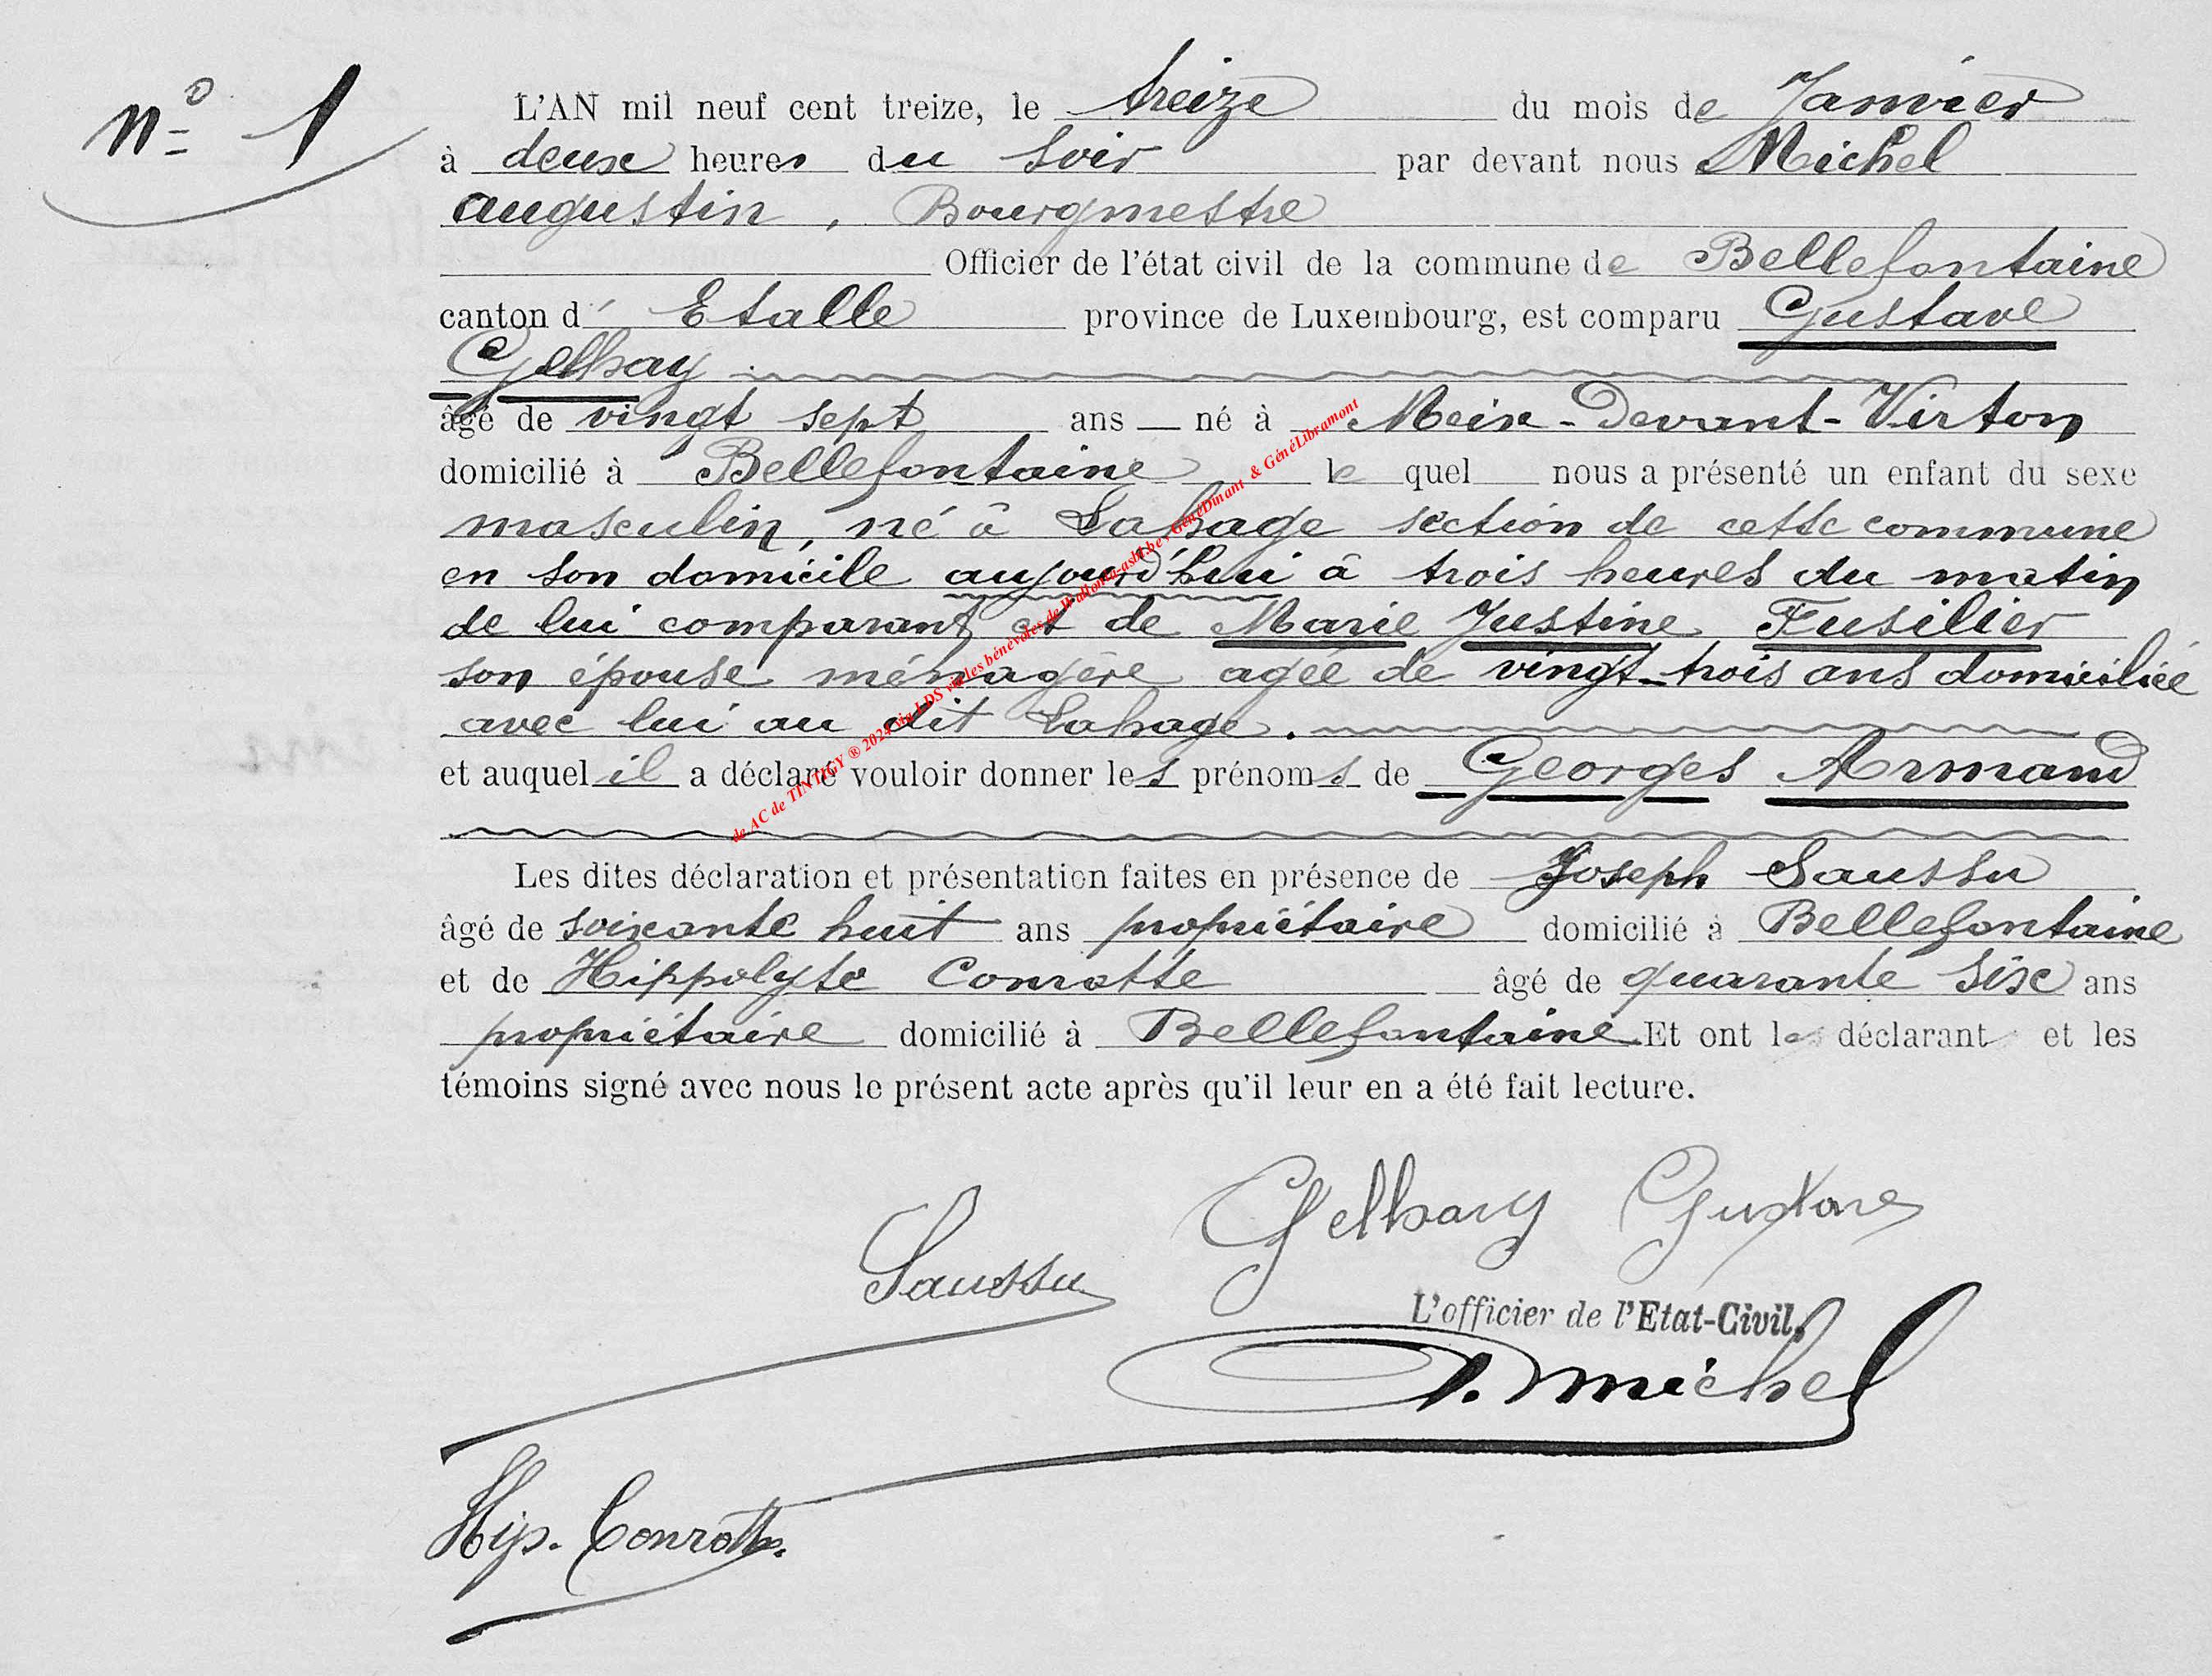 N° 1
L'AN mil neuf cent treize, le treize du mois de Janvier
à deux heures du soir par devant nous Michel
Augustin, Bourgmestre
Officier de l'état civil de la commune de Bellefontaine
canton d' Etalle province de Luxembourg, est comparu Gustave
Gelhay
âgé de vingt sept ans — né à Meix-Devant-Virton
domicilié à Bellefontaine le quel nous a présenté un enfant du sexe
masculin, né à Lahage section de cette commune
en son domicile aujourd'hui à trois heures du matin
de lui comparant et de Marie Justine Fusilier
son épouse ménagère agée de vingt-trois ans domiciliée
avec lui au dit Lahage.
et auquel il a déclaré vouloir donner les prénoms de Georges Armand
Les dites déclaration et présentation faites en présence de Joseph Saussu
âgé de soixante huit ans propriétaire domicilié à Bellefontaine
et de Hippolyte Conrotte âgé de quarante six ans
propriétaire domicilié à Bellefontaine Et ont les déclarant et les
témoins signé avec nous le présent acte après qu'il leur en a été fait lecture.
Gelhay Gustave
Saussu
L'officier de l'Etat-Civil,
A. Michel
Hip. Conrotte.
de AC de TINTIGY ® 2024 via LDS via les bénévoles de Wallonia-asbl.be, GénéDinant & GénéLibramont